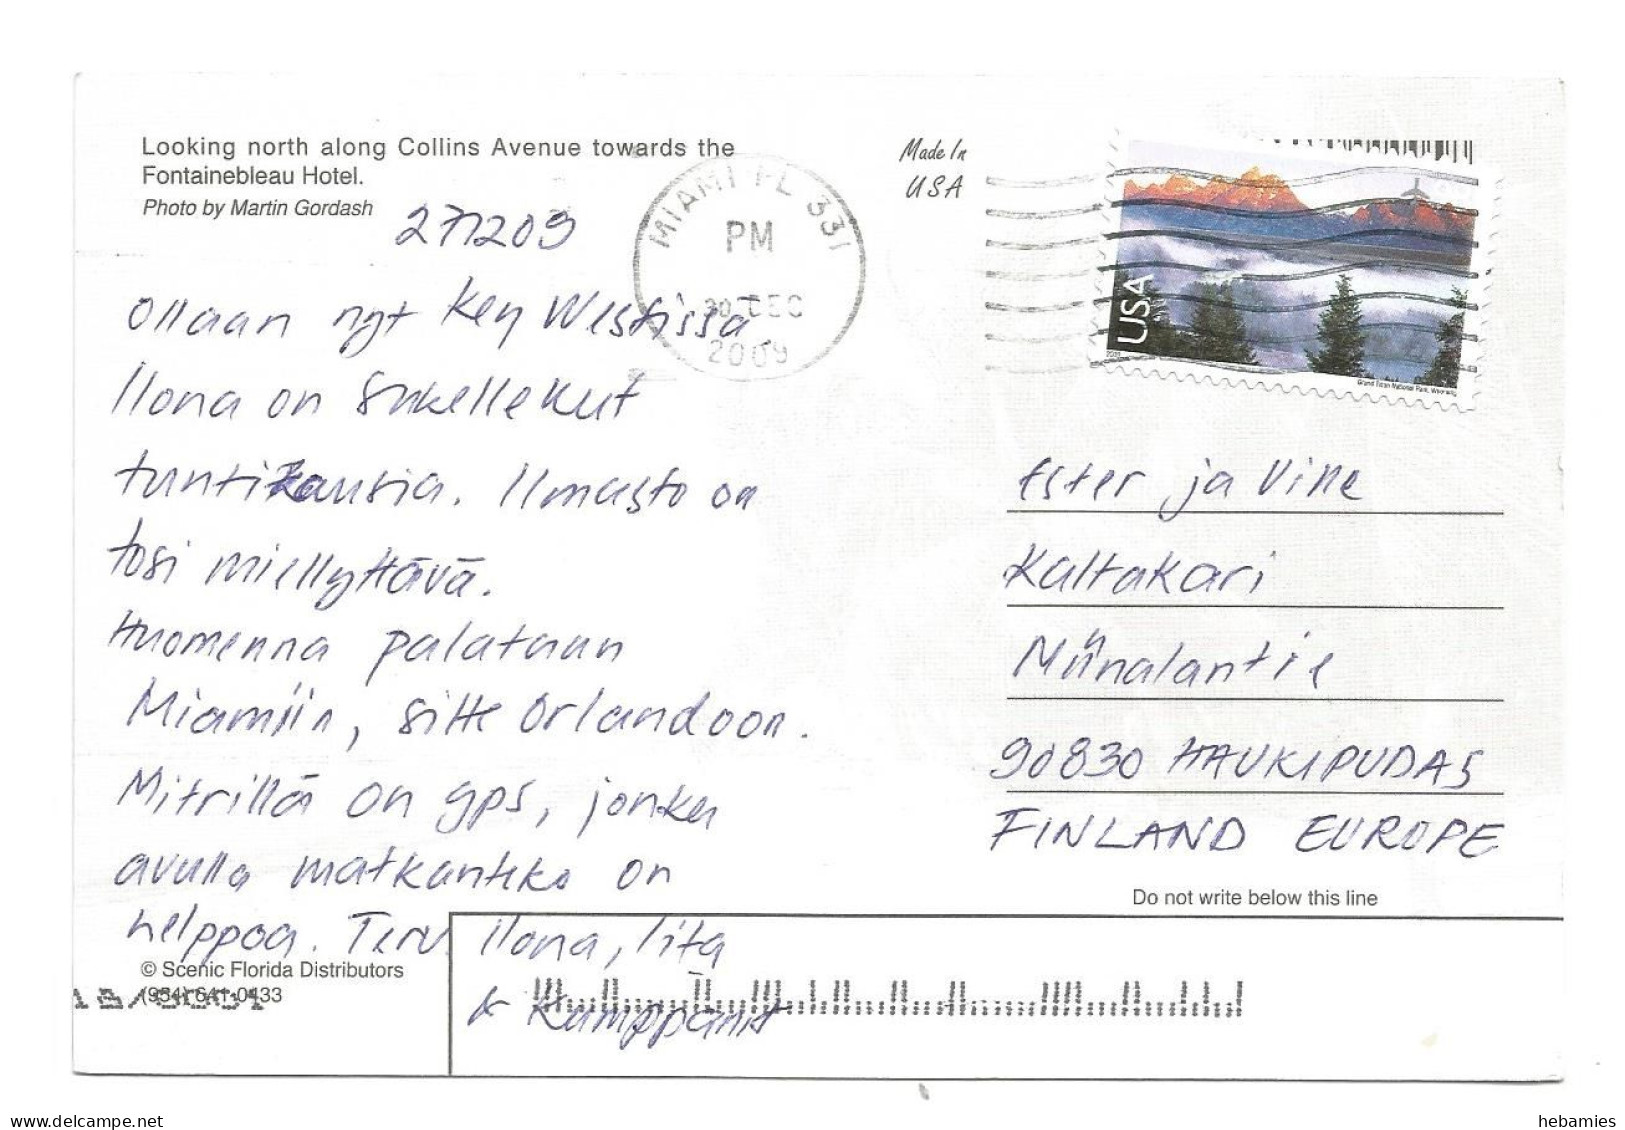 Looking north along Collins Avenue towards the
Fontainebleau Hotel.
Photo by Martin Gordash
271209
Ollaan nyt Key Westissä.
Ilona on sukellellut
tuntikausia. Ilmasto on
tosi miellyttävä.
Huomenna palataan
Miamiin, sitte Orlandoon.
Mitrillä on gps, jonka
avulla matkanteko on
helppoa. Terv. Ilona, Iita
& Kumppanit
© Scenic Florida Distributors
(954) 641-0433
MIAMI FL 331
PM
30 DEC
2009
Made In
USA
USA
Grand Teton National Park, Wyoming
Ester ja Ville
Kaltakari
Niinalantie
90830 HAUKIPUDAS
FINLAND EUROPE
Do not write below this line
hebamies